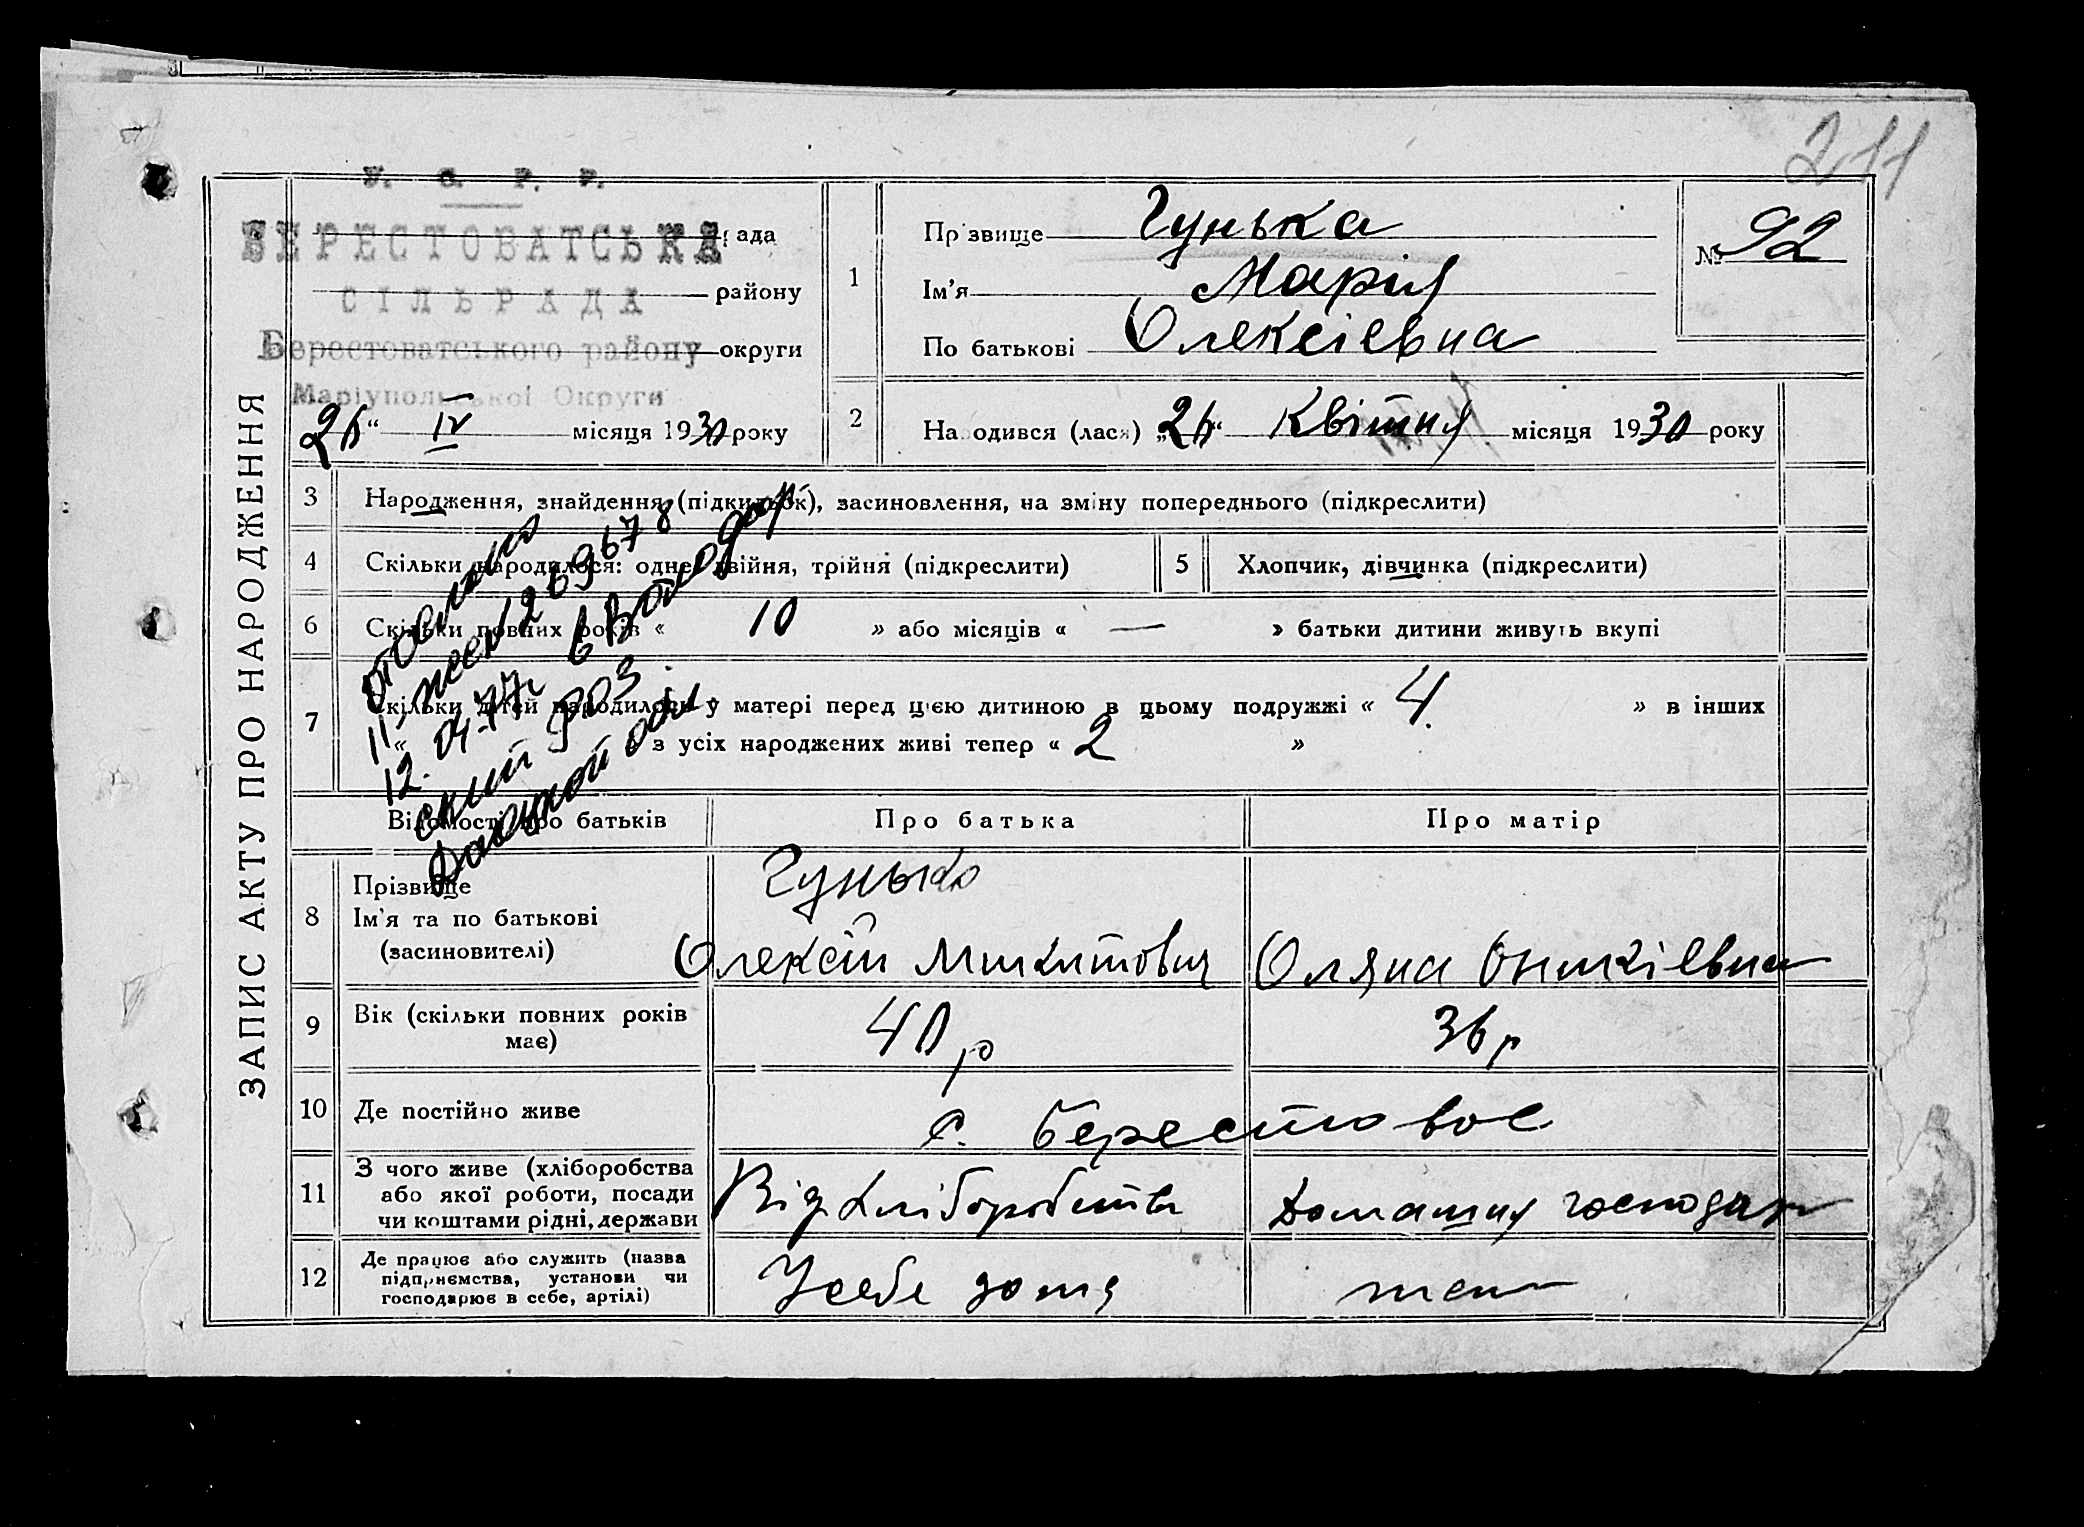 211
У. С. Р. Р.
БЕРЕСТОВАТСЬКА рада
СІЛЬРАДА району
Берестоватського району округи
Маріупольської Округи
„26“ IV місяця 1930 року
ЗАПИС АКТУ ПРО НАРОДЖЕННЯ
1
Прізвище Гунька
Ім'я Марія
По батькові Олексіевна
№ 92
2
Народився (лася) „26“ Квітня місяця 1930 року
3 Народження, знайдення (підкидьок), засиновлення, на зміну попереднього (підкреслити)
4 Скільки народилося: одне, двійня, трійня (підкреслити)
5 Хлопчик, дівчинка (підкреслити)
6 Скільки повних років « 10 » або місяців « — » батьки дитини живуть вкупі
7 Скільки дітей народилось у матері перед цією дитиною в цьому подружжі « 4 » в інших
« з усіх народжених живі тепер « 2 »
269678
12.04.77г
Відомості про батьків
Про батька
Про матір
8 Прізвище
Ім'я та по батькові
(засновителі)
Гунько
Олексій Микитович
Оляна Оникіевна
9 Вік (скільки повних років
має)
40 р
36 р
10 Де постійно живе
с. Берестовое
11 З чого живе (хліборобства
або якої роботи, посади
чи коштами рідні, держави
Від хліборобства
Домашня господар
12 Де працює або служить (назва
підприємства, установи чи
господарює в себе, артілі)
У себе дома
теж